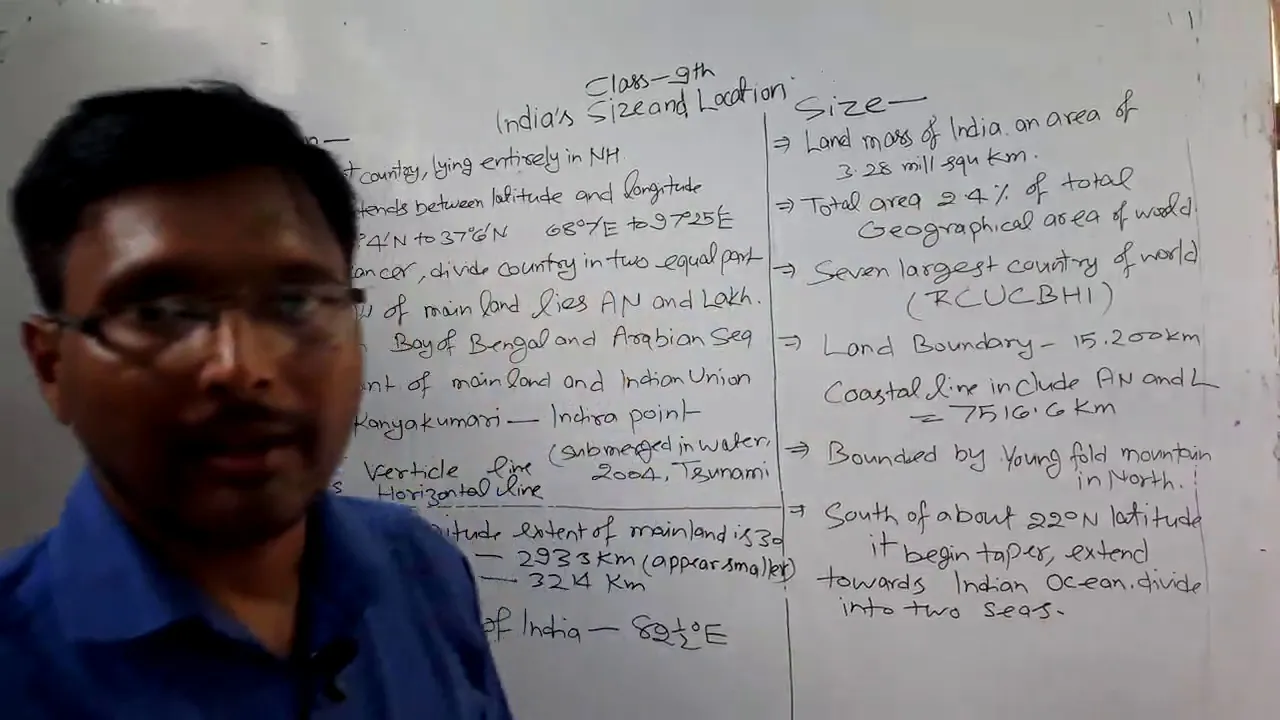 Class-9th
India's Size and Location
country, lying entirely in NH
tends between latitude and longitude
4'N to 37°6'N 68°7'E to 97°25'E
ancer, divide country in two equal part
of main land lies AN and Lakh.
Bay of Bengal and Arabian Sea
of mainland and Indian Union
Kanyakumari — Indira point
(submerged in water,
2004, Tsunami
Verticle line
Horizontal line
itude extent of mainland is 30
— 2933 Km (appear smaller)
— 3214 Km
of India — 82½°E
Size —
⇒ Land mass of India. an area of
3.28 mill squ km.
⇒ Total area 2.4% of total
Geographical area of world
⇒ Seven largest country of world
(RCUCBHI)
⇒ Land Boundary - 15.200km
Coastal line include AN and L
= 7516.6 Km
⇒ Bounded by Young fold mountain
in North.
⇒ South of about 22°N latitude
it begin taper, extend
towards Indian Ocean. divide
into two seas.